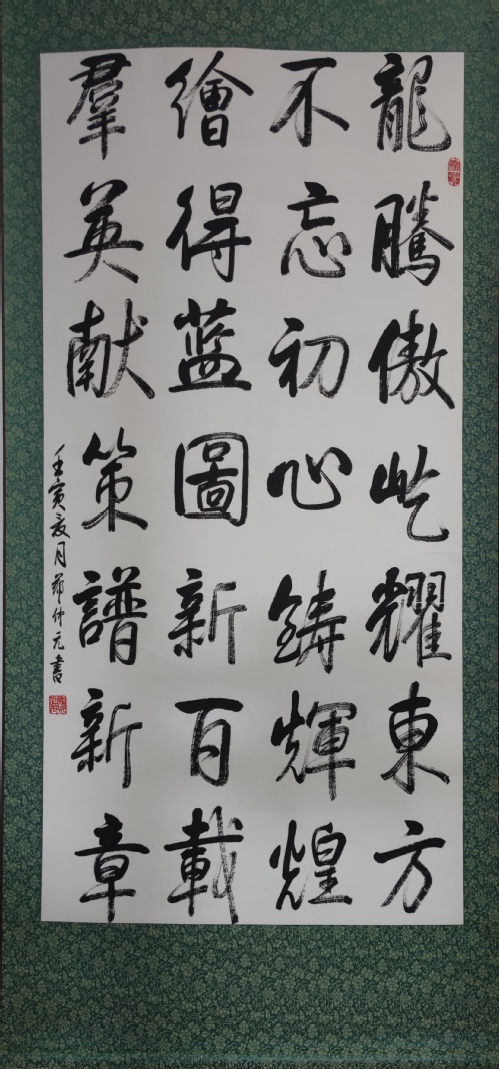 龍騰傲屹耀東方
不忘初心鑄輝煌
繪得蓝圖新百載
羣英献策譜新章
壬寅亥月 仲元書